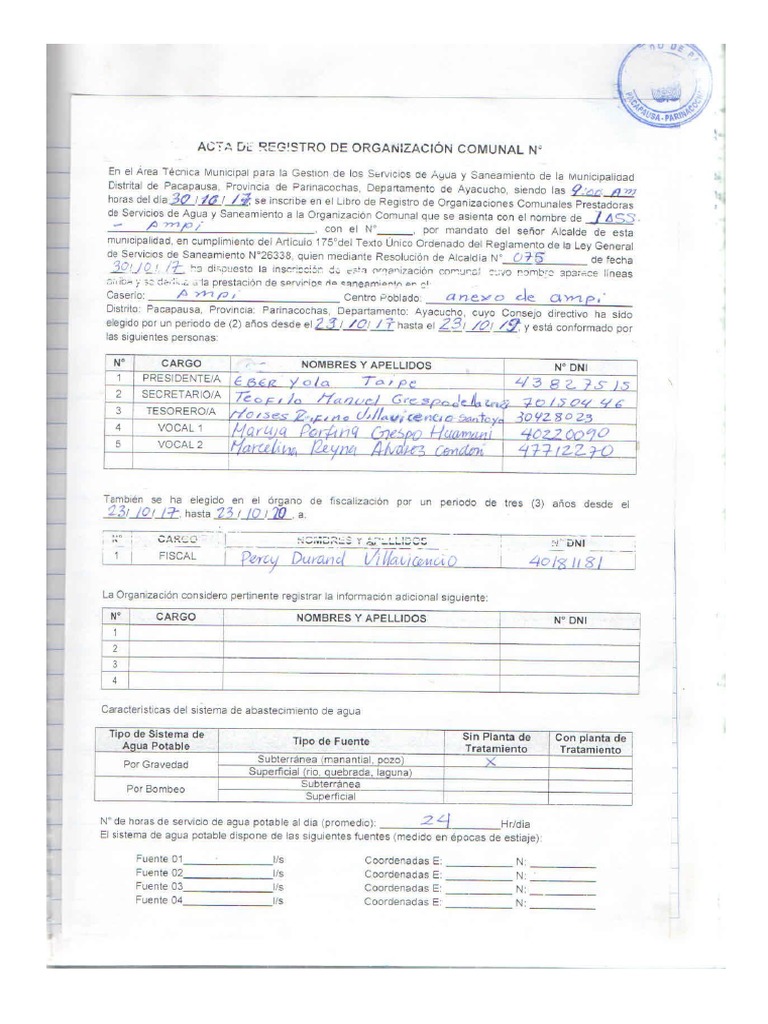 PACAPAUSA - PARINACOCHAS
ACTA DE REGISTRO DE ORGANIZACIÓN COMUNAL N°
En el Área Técnica Municipal para la Gestion de los Servicios de Agua y Saneamiento de la Municipalidad
Distrital de Pacapausa, Provincia de Parinacochas, Departamento de Ayacucho, siendo las 9:00 Am
horas del dia 30/10/17, se inscribe en el Libro de Registro de Organizaciones Comunales Prestadoras
de Servicios de Agua y Saneamiento a la Organización Comunal que se asienta con el nombre de JASS
- Ampi, con el N° ______, por mandato del señor Alcalde de esta
municipalidad, en cumplimiento del Articulo 175°del Texto Único Ordenado del Reglamento de la Ley General
de Servicios de Saneamiento N°26338, quien mediante Resolución de Alcaldía N° 075 de fecha
30/10/17 ha dispuesto la inscripción de esta organización comunal cuyo nombre aparece líneas
arriba y se dedica a la prestación de servicios de saneamiento en el:
Caserío: Ampi Centro Poblado: anexo de ampi
Distrito: Pacapausa, Provincia: Parinacochas, Departamento: Ayacucho, cuyo Consejo directivo ha sido
elegido por un periodo de (2) años desde el 23/10/17 hasta el 23/10/19, y está conformado por
las siguientes personas:
N° CARGO NOMBRES Y APELLIDOS N° DNI
1 PRESIDENTE/A EBER Yola Taipe 43827515
2 SECRETARIO/A Teofilo Manuel Crespo de la cruz 70150446
3 TESORERO/A Moises Rufino Villavicencio Santoyo 30428023
4 VOCAL 1 Maruja Porfina Crespo Huamani 40220090
5 VOCAL 2 Marcelina Reyna Alvarez Condori 47712270
También se ha elegido en el órgano de fiscalización por un periodo de tres (3) años desde el
23/10/17, hasta 23/10/20, a:
N° CARGO NOMBRES Y APELLIDOS N° DNI
1 FISCAL Percy Durand Villavicencio 40181181
La Organización considero pertinente registrar la información adicional siguiente:
N° CARGO NOMBRES Y APELLIDOS N° DNI
1
2
3
4
Características del sistema de abastecimiento de agua
Tipo de Sistema de Agua Potable Tipo de Fuente Sin Planta de Tratamiento Con planta de Tratamiento
Por Gravedad Subterránea (manantial, pozo) X
Superficial (rio, quebrada, laguna)
Por Bombeo Subterránea
Superficial
N° de horas de servicio de agua potable al dia (promedio): 24 Hr/dia
El sistema de agua potable dispone de las siguientes fuentes (medido en épocas de estiaje):
Fuente 01 ______ l/s Coordenadas E: ______ N: ______
Fuente 02 ______ l/s Coordenadas E: ______ N: ______
Fuente 03 ______ l/s Coordenadas E: ______ N: ______
Fuente 04 ______ l/s Coordenadas E: ______ N: ______